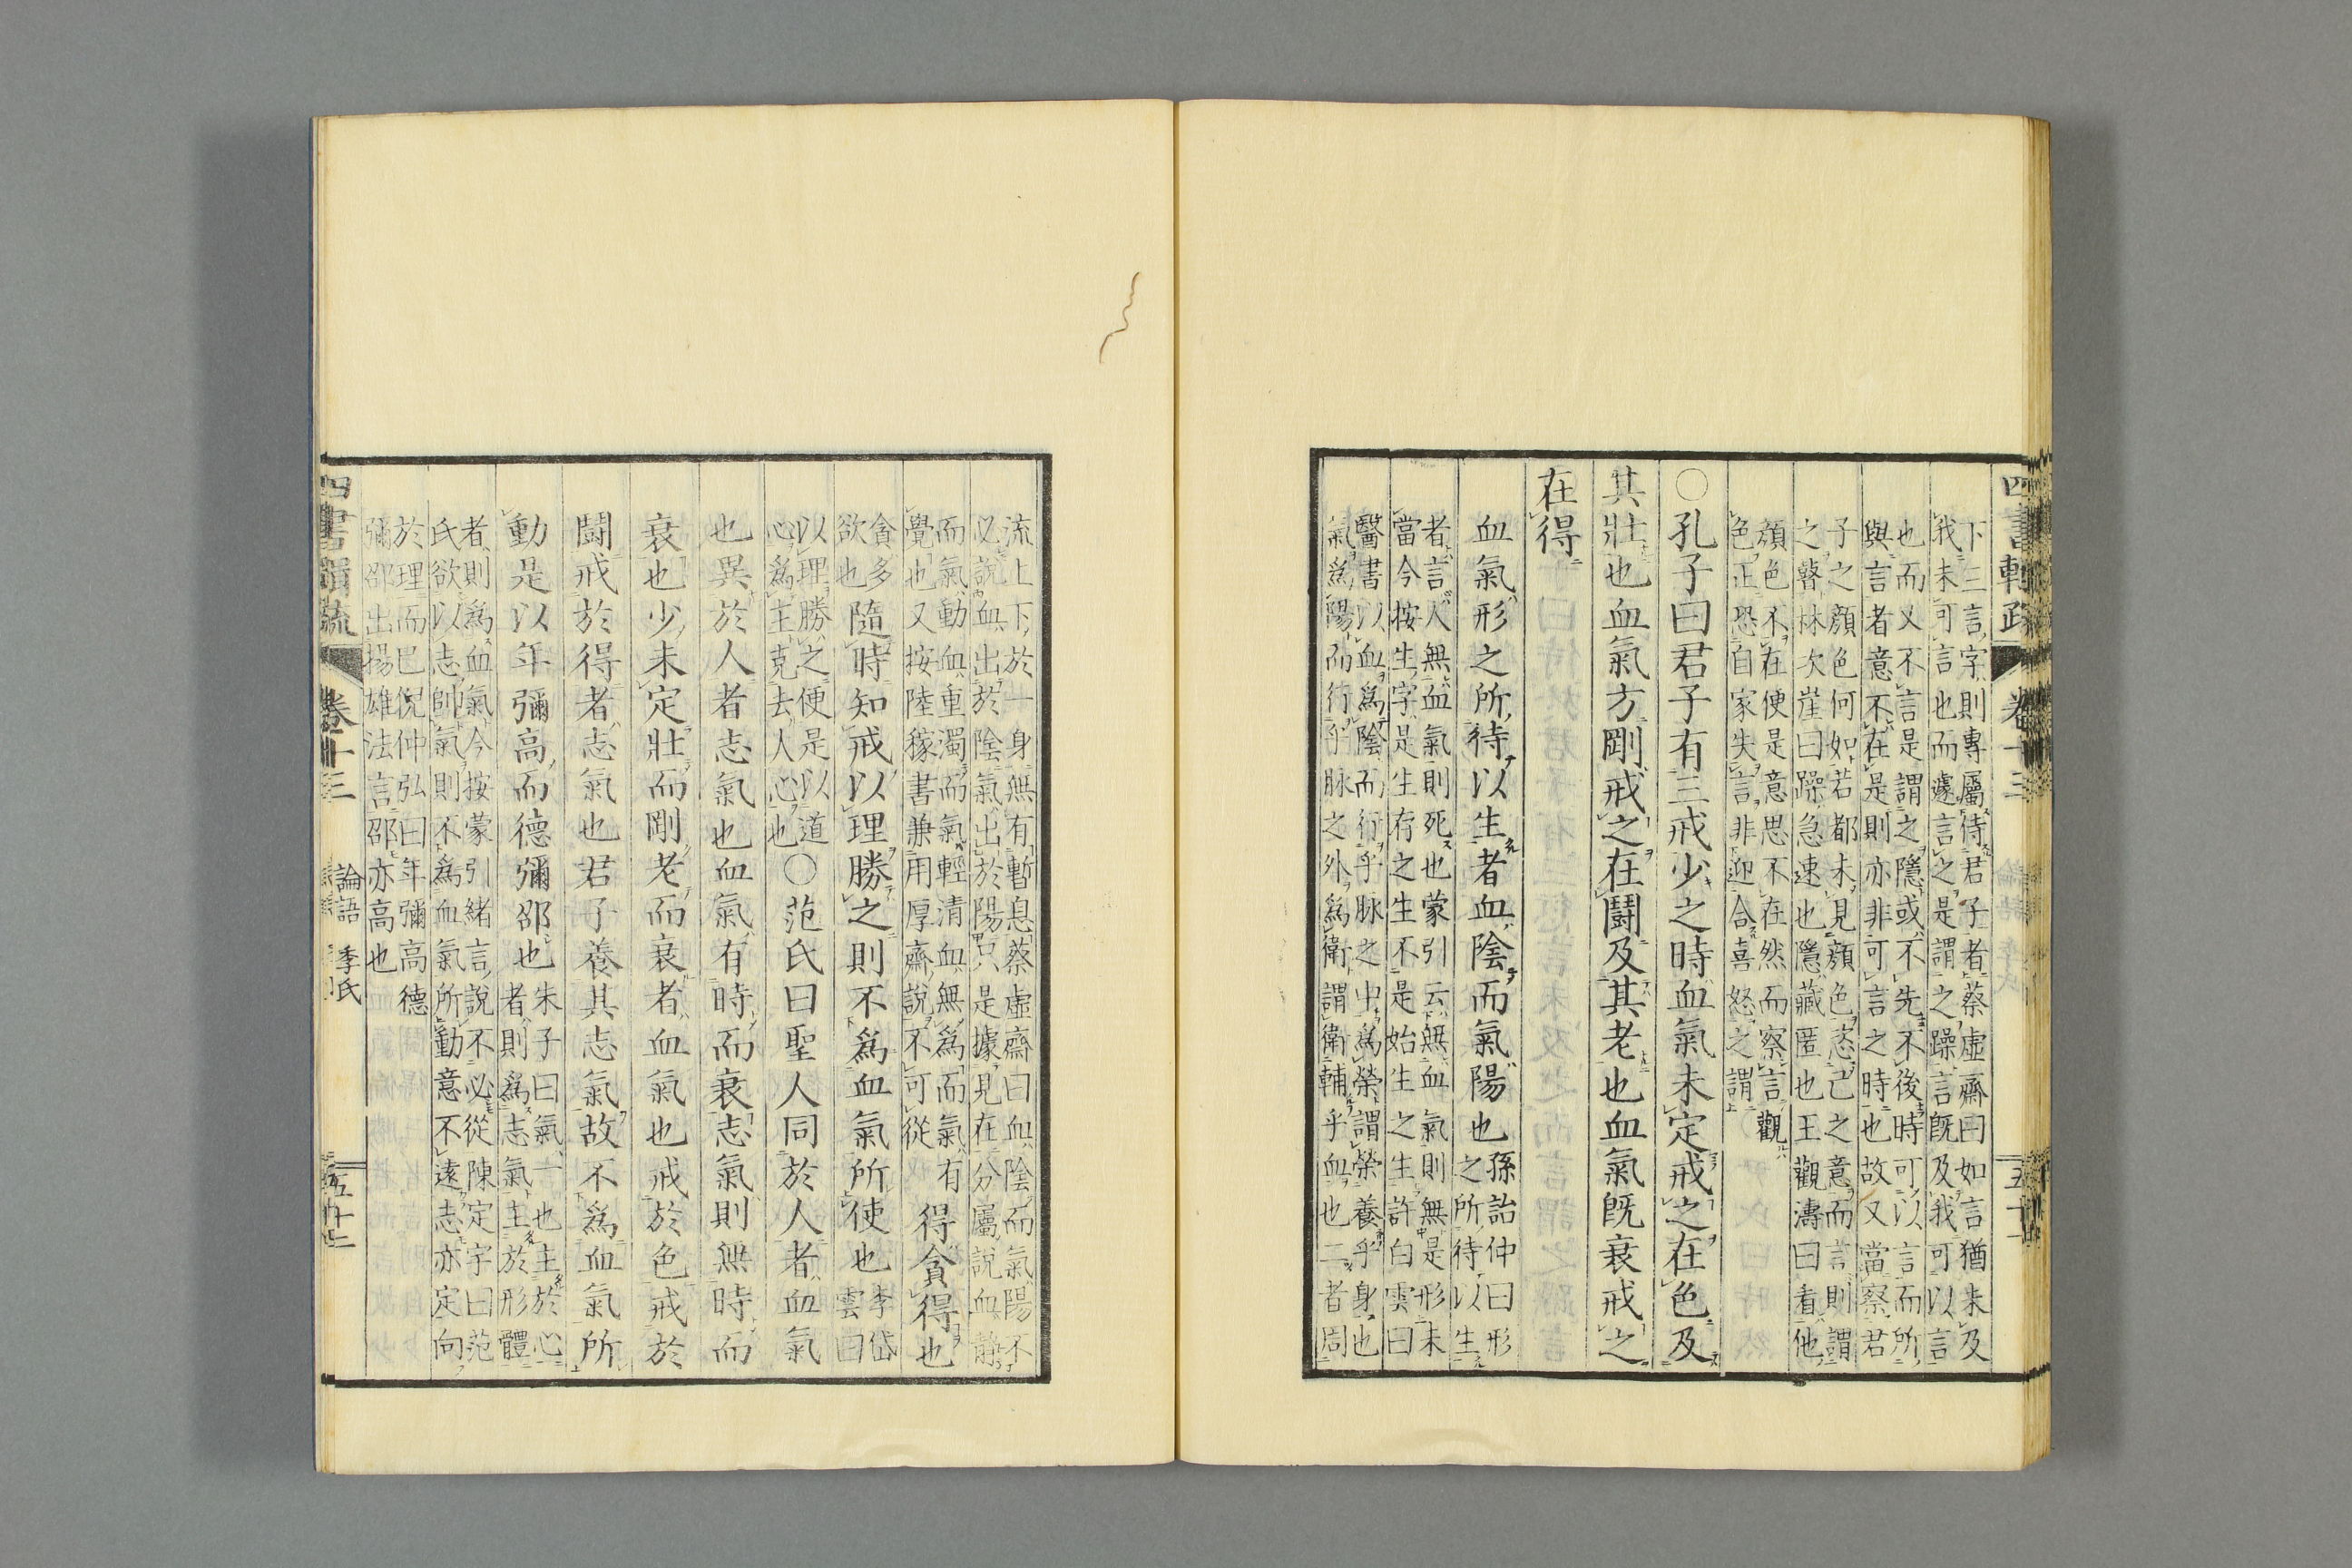 下三言字則專屬侍君子者蔡虛齋曰如言猶未及
我未可言也而遽言之是謂之躁言既及我可以言
也而又不言是謂之隱或不先不後時可以言而所
與言者意不在是則亦非可言之時也故又當察君
子之顏色何如若都未見顏色恣己之意而言則謂
之瞽林次崖曰躁急速也隱藏匿也王觀濤曰看他
顏色不在便是意思不在然而察言觀
色正恐自家失言非迎合喜怒之謂
○孔子曰君子有三戒少之時血氣未定戒之在色及
其壯也血氣方剛戒之在鬪及其老也血氣既衰戒之
在得
血氣形之所待以生者血陰而氣陽也孫詒仲曰形
之所待以生
者言人無血氣則死也蒙引云無血氣則無是形未
當今按生字是生存之生不是始生之生許白雲曰
醫書以血為陰而行乎脉之中為榮謂榮養乎身也
氣為陽而行乎脉之外為衛謂衛輔乎血也二者周
四書 卷十三
流上下於一身無有暫息蔡虛齋曰血陰而氣陽不
必說血出於陰氣出於陽只是據見在分屬說血靜
而氣動血重濁而氣輕清血無為而氣有
覺也又按陸稼書兼用厚齋說不可從
得貪得也
貪多
欲也
隨時知戒以理勝之則不為血氣所使也李岱
雲曰
以理勝之便是以道
心為主克去人心也
○范氏曰聖人同於人者血氣
也異於人者志氣也血氣有時而衰志氣則無時而
衰也少未定壯而剛老而衰者血氣也戒於色戒於
鬪戒於得者志氣也君子養其志氣故不為血氣所
動是以年彌高而德彌邵也朱子曰氣一也主於心
者則為志氣主於形體
者則為血氣今按蒙引緒言說不必從陳定宇曰范
氏欲以志帥氣則不為血氣所動意不遠志亦定向
於理而已倪仲弘曰年彌高德
彌邵出揚雄法言邵亦高也
四書 卷十三 論語 季氏